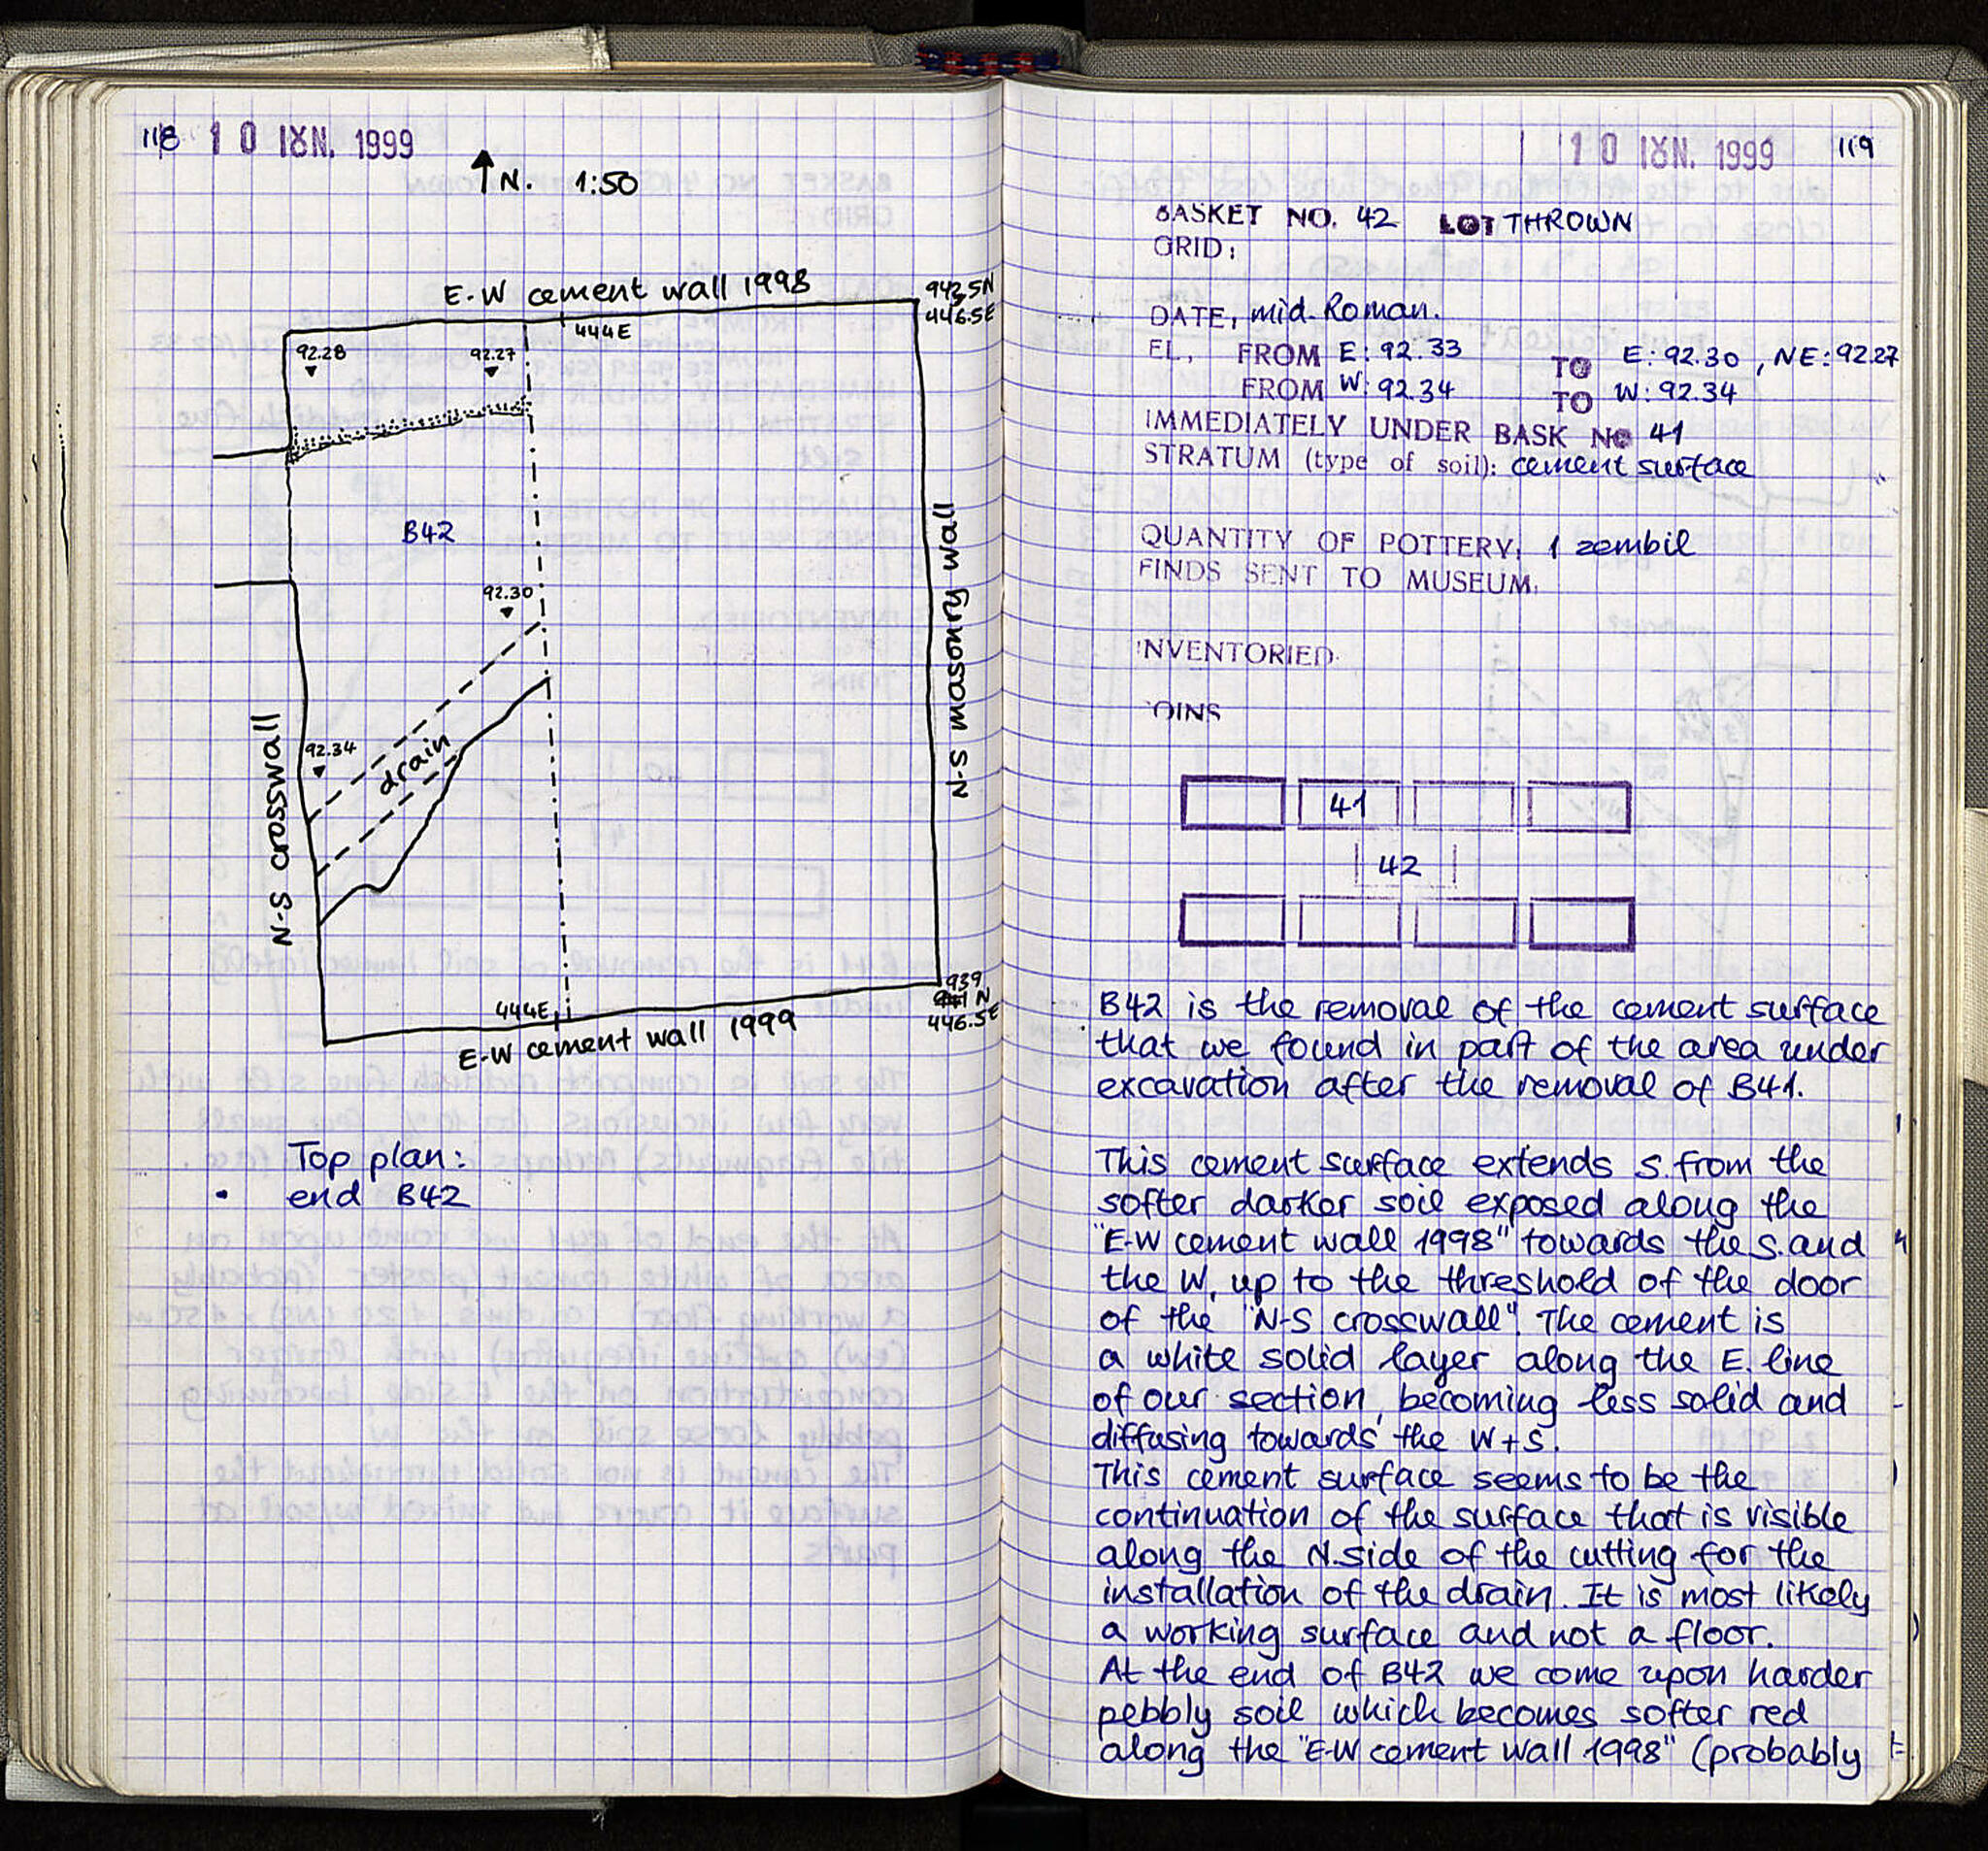 118 10 ΙΟΥΝ. 1999
N. 1:50
E-W cement wall 1998
942.5N
446.5E
444E
92.28
92.27
B42
92.30
92.34
drain
N-S crosswall
N-S masonry wall
444E
939
N
446.5E
E-W cement wall 1999
Top plan:
end B42
10 ΙΟΥΝ. 1999 119
BASKET NO. 42 LOT THROWN
GRID:
DATE, mid-Roman.
EL, FROM E: 92.33 TO E: 92.30, NE: 92.27
FROM W: 92.34 TO W: 92.34
IMMEDIATELY UNDER BASK No 41
STRATUM (type of soil): cement surface
QUANTITY OF POTTERY: 1 zembil
FINDS SENT TO MUSEUM.
INVENTORIED
OINS
41
42
B42 is the removal of the cement surface
that we found in part of the area under
excavation after the removal of B41.
This cement surface extends S. from the
softer darker soil exposed along the
"E-W cement wall 1998" towards the S. and
the W, up to the threshold of the door
of the "N-S crosswall". The cement is
a white solid layer along the E. line
of our section, becoming less solid and
diffusing towards the W+S.
This cement surface seems to be the
continuation of the surface that is visible
along the N. side of the cutting for the
installation of the drain. It is most likely
a working surface and not a floor.
At the end of B42 we come upon harder
pebbly soil which becomes softer red
along the "E-W cement wall 1998" (probably